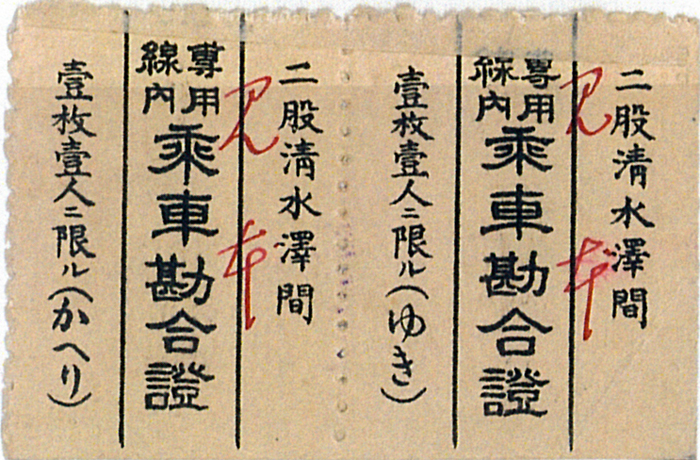 二股清水澤間
專用線內
乘車勘合證
壹枚壹人ニ限ル(ゆき)
二股清水澤間
專用線內
乘車勘合證
壹枚壹人ニ限ル(かへり)